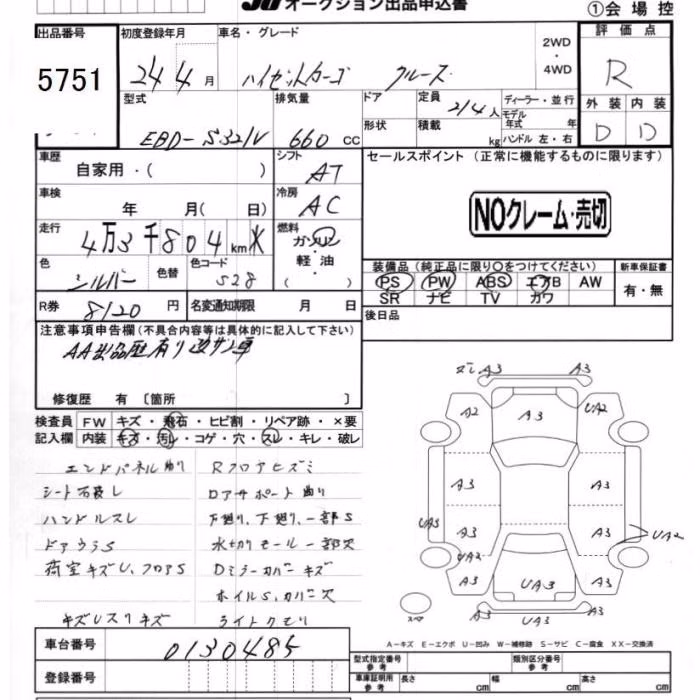 オークション出品申込書
①会場控
出品番号
5751
初度登録年月
24年4月
車名・グレード
ハイゼットカーゴ クルーズ
2WD
・
4WD
評価点
R
外装 内装
D D
型式
EBD-S321V
排気量
660cc
ドア
形状
定員
2/4人
積載
kg
ディーラー・並行
モデル年式 年
ハンドル 左・右
車歴
自家用・( )
シフト
AT
セールスポイント(正常に機能するものに限ります)
NOクレーム・売切
車検
年 月( 日)
冷房
AC
走行
4万3千804km
燃料
ガソリン
軽・油
( )
色
シルバー
色替
色コード
S28
装備品(純正品に限り○をつけてください)
PS PW ABS エアB AW
SR ナビ TV カワ
新車保証書
有・無
R券
8120円
名変通知期限 月 日
後日品
注意事項申告欄(不具合内容等は具体的に記入して下さい)
AA出品歴有り
修復歴 有〔箇所 〕
検査員記入欄
FW キズ・飛石・ヒビ割・リペア跡・×要
内装 キズ・汚レ・コゲ・穴・スレ・キレ・破レ
エンドパネル曲り
シート
ハンドルスレ
ドアウラS
荷室キズU、フロアS
キズUスリキズ
Rフロアヒズミ
ロアサポート曲り
下廻り、一部S
水切りモール一部欠
Dミラーカバーキズ
ホイルS、カバー欠
ライトクモリ
A3 A3
A2 A3 UA2
A3 A3
UA3 A3 A3 UA2
UA2
A3 UA3 A3
A3 UA3 A3
スペア
A-キズ E-エクボ U-凹み W-補修跡 S-サビ C-腐食 XX-交換済
車台番号
0130485
登録番号
型式指定番号 参考
類別区分番号 参考
車庫証明用 参考
長さ cm
幅 cm
高さ cm